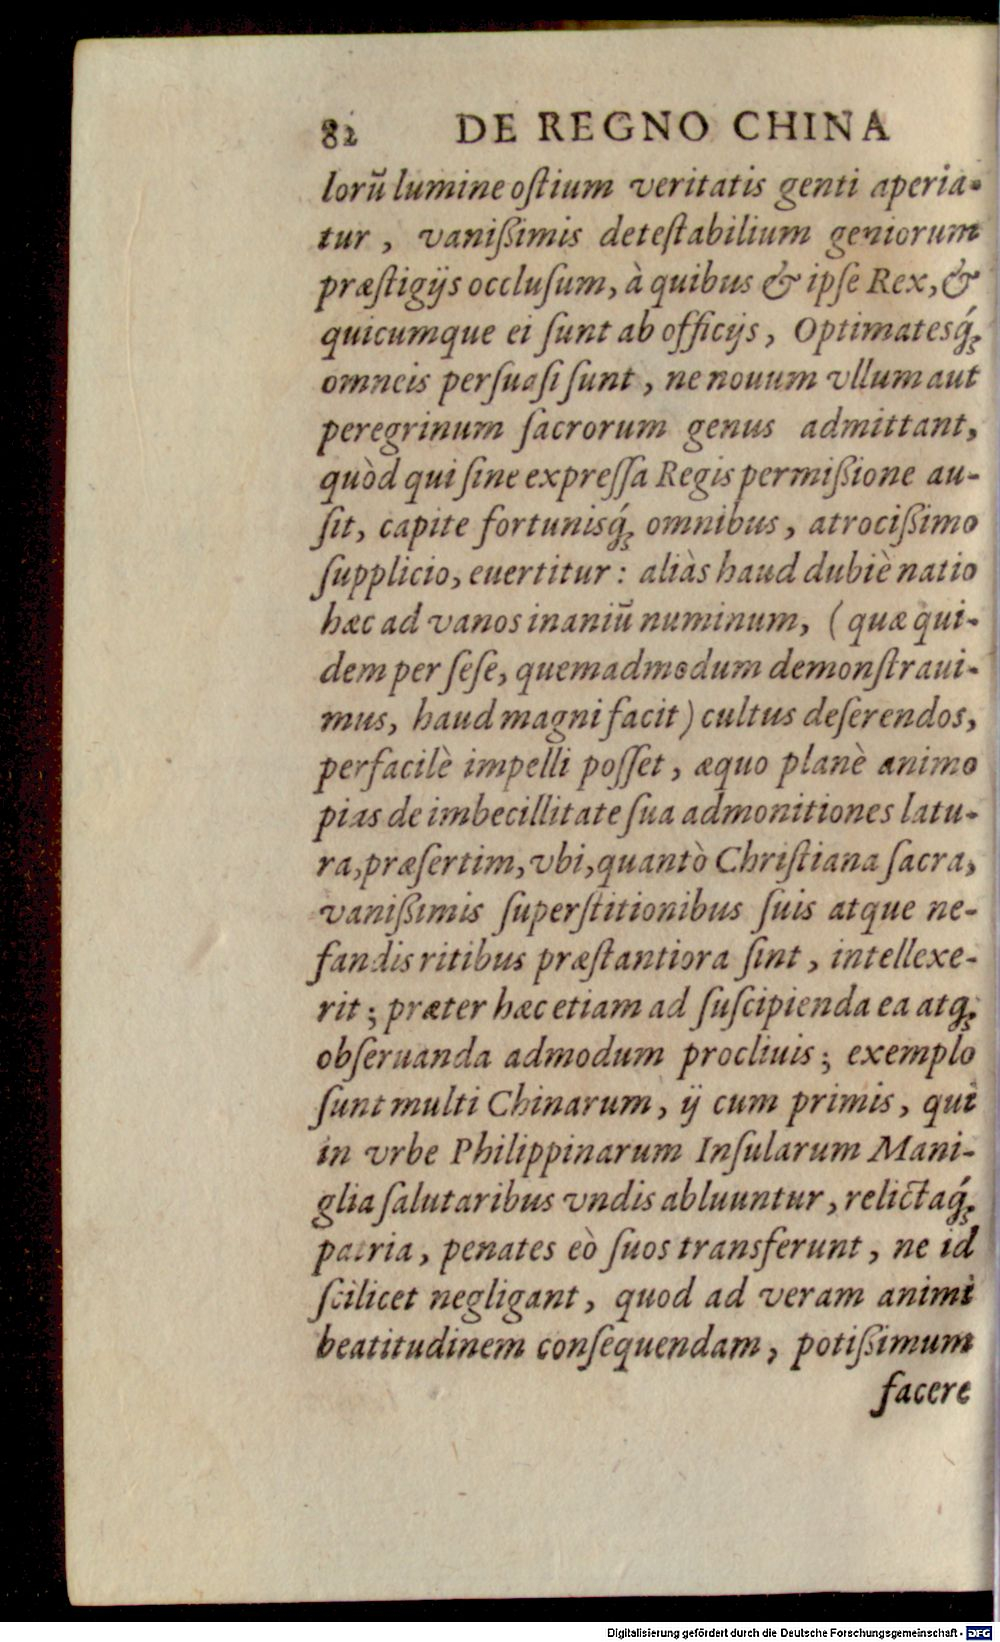 82 DE REGNO CHINA
lorū lumine oſtium veritatis genti aperia-
tur, vaniſſimis deteſtabilium geniorum
præſtigijs occluſum, à quibus & ipſe Rex, &
quicumque ei ſunt ab officijs, Optimatesq́;
omneis perſuaſi ſunt, ne nouum vllum aut
peregrinum ſacrorum genus admittant,
quòd qui ſine expreſſa Regis permiſſione au-
ſit, capite fortunisq́; omnibus, atrociſſimo
ſupplicio, euertitur: aliàs haud dubiè natio
hæc ad vanos inaniū numinum, (quæ qui-
dem per ſeſe, quemadmodum demonſtraui-
mus, haud magni facit) cultus deſerendos,
perfacilè impelli poſſet, æquo planè animo
pias de imbecillitate ſua admonitiones latu-
ra, præſertim, vbi, quantò Chriſtiana ſacra,
vaniſſimis ſuperſtitionibus ſuis atque ne-
fandis ritibus præſtantiora ſint, intellexe-
rit; præter hæc etiam ad ſuſcipienda ea atq;
obſeruanda admodum procliuis; exemplo
ſunt multi Chinarum, ij cum primis, qui
in vrbe Philippinarum Inſularum Mani-
glia ſalutaribus vndis abluuntur, relictaq́;
patria, penates eò ſuos transferunt, ne id
ſcilicet negligant, quod ad veram animi
beatitudinem conſequendam, potiſſimum
facere
Digitalisierung gefördert durch die Deutsche Forschungsgemeinschaft - DFG